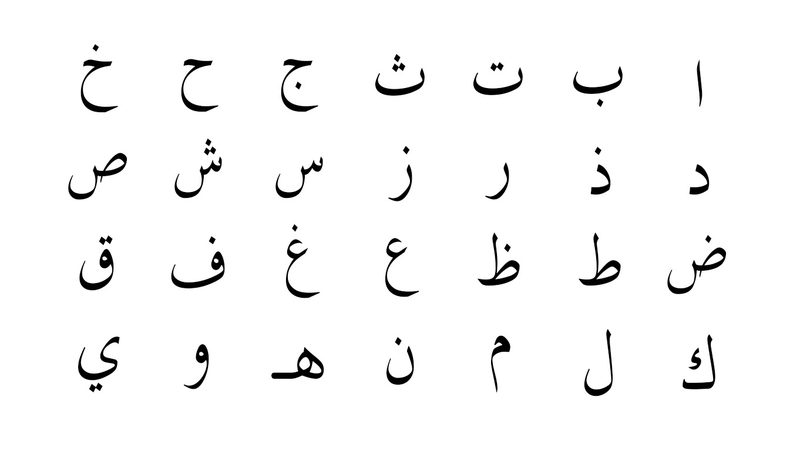 ا ب ت ث ج ح خ
د ذ ر ز س ش ص
ض ط ظ ع غ ف ق
ك ل م ن هـ و ي